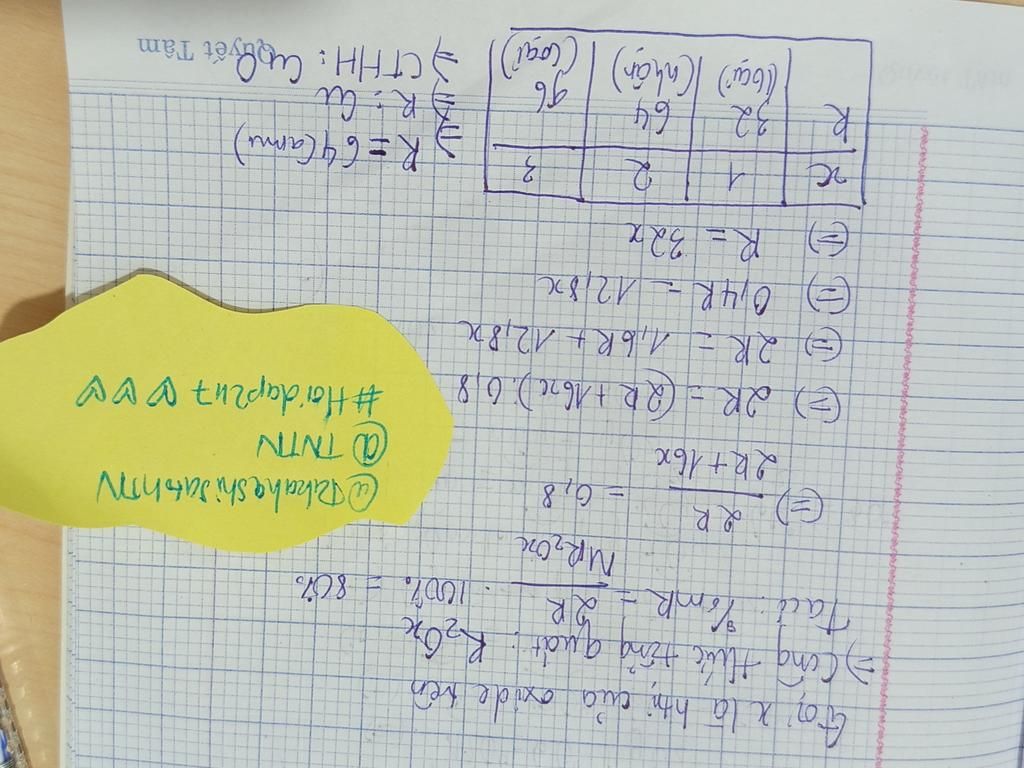 Gọi x là htrị của oxide trên
=> Công thức tổng quát : R₂Oₓ
Ta có : %mR = 2R / MR₂Oₓ . 100% = 80%
(=) 2R / 2R + 16x = 0,8
(=) 2R = (2R + 16x). 0,8
(=) 2R = 1,6R + 12,8x
(=) 0,4R = 12,8x
(=) R = 32x
x | 1 | 2 | 3
R | 32 (loại) | 64 (nhận) | 96 (loại)
=> R = 64 (amu)
=> R : Cu
=> CTHH : CuO
@TNTN
#Hoidap247
Quyết Tâm